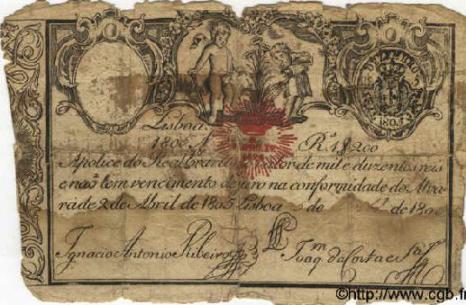 1805
Lisboa.
R.s 1$200
Apolice do Real Erario do valor de mil e duzentos reis
e não tem vencimento de juro na conformidade do Alva
rá de 2 de Abril de 1805 Lisboa 2 do de 180
Ignacio Antonio Ribeiro
Joaq. da Costa e
©http://www.cgb.fr